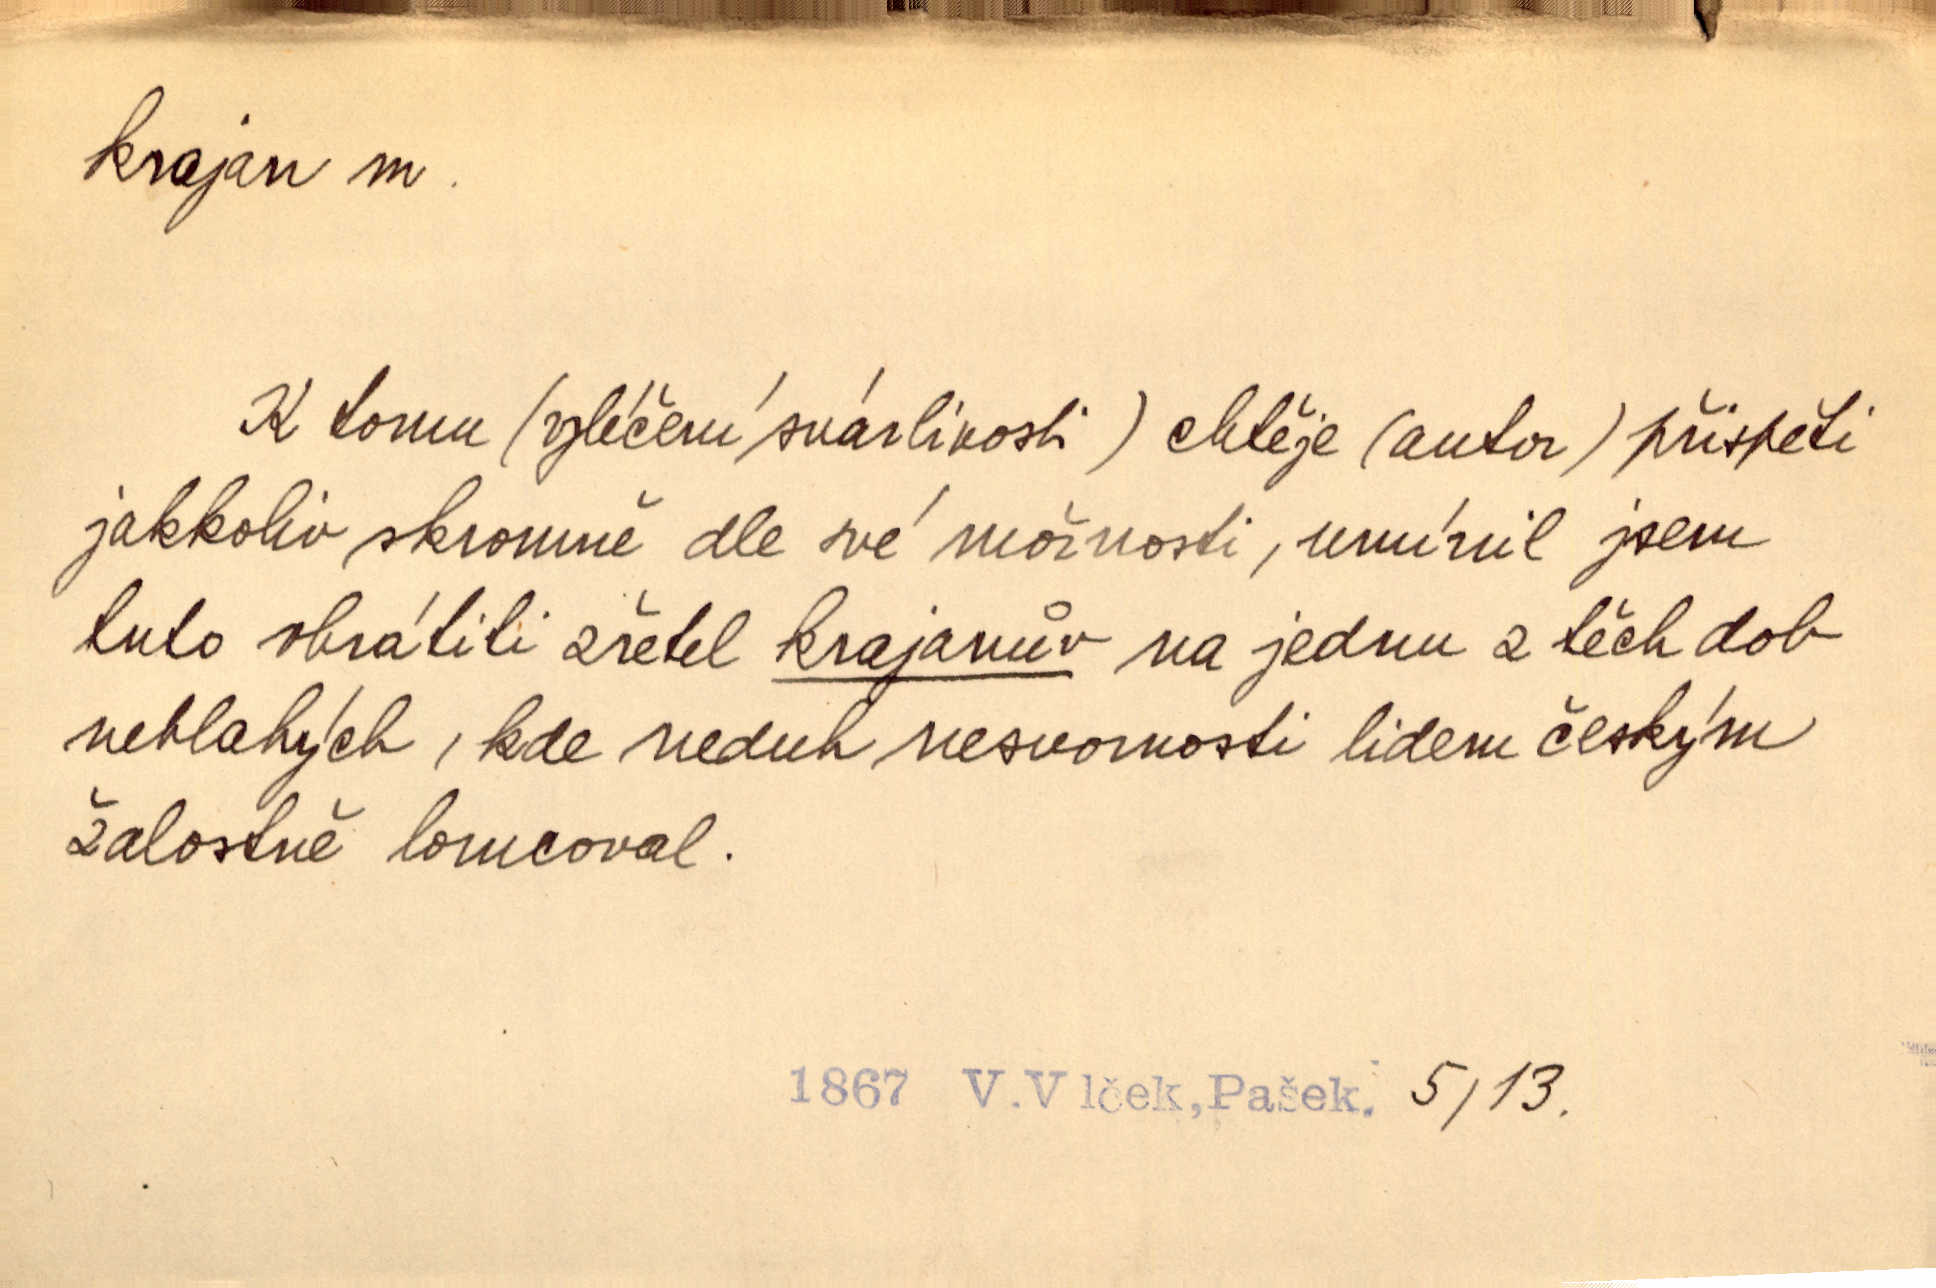 krajan m.
K tomu (vyléčení svárlivosti) chtěje (autor) přispěti
jakkoliv skromně dle své možnosti, umínil jsem
tuto obrátiti zřetel krajanův na jednu z těch dob
neblahých, kde neduh nesvornosti lidem českým
žalostně lomcoval.
1867 V.Vlček,Pašek. 5/13.